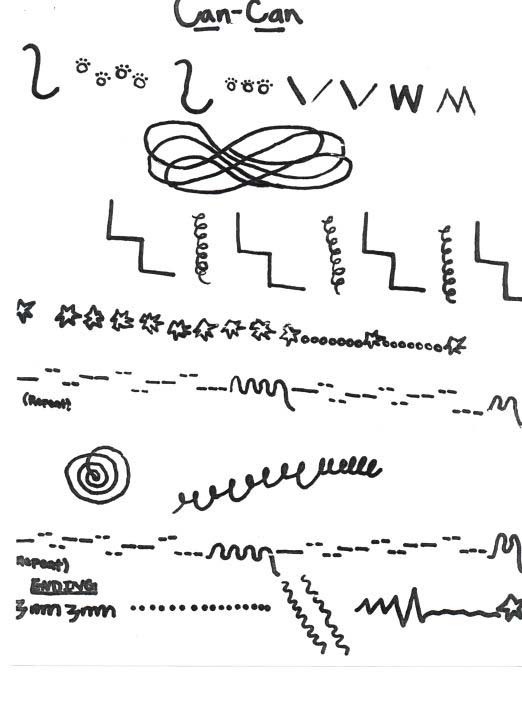 Can-Can
(Repeat)
Repeat)
ENDING: